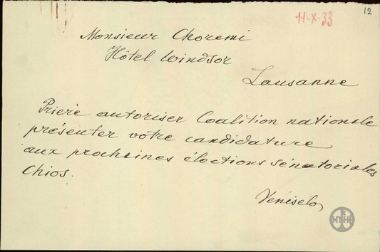 11-X-33
12
Monsieur Choremi
Hôtel Windsor
Lausanne
Prière autoriser Coalition nationale
présenter votre candidature
aux prochaines élections sénatoriales
Chios.
Véniselos